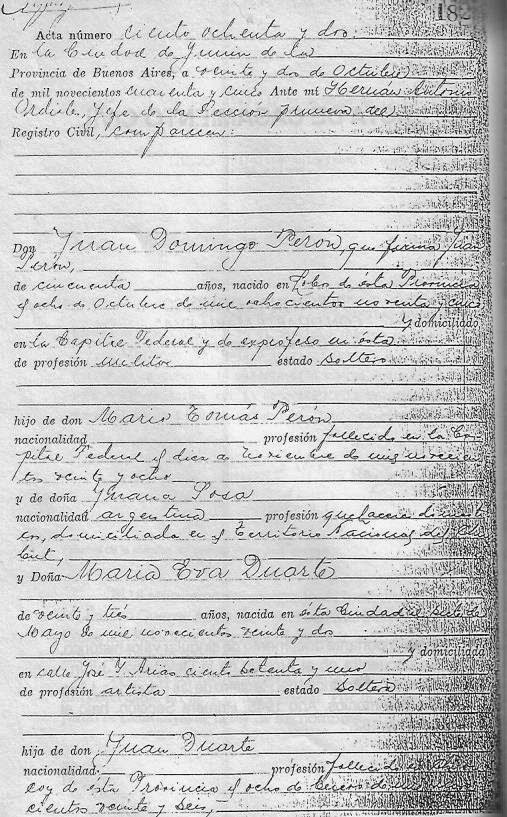 182
Acta número ciento ochenta y dos.
En la Ciudad de Junin de la
Provincia de Buenos Aires, a veinte y dos de Octubre
de mil novecientos cuarenta y cinco Ante mí Hernan Antonio
Ordiales, Jefe de la Sección primera del
Registro Civil, comparecen:
Don Juan Domingo Perón, que firma Juan
Perón,
de cincuenta años, nacido en Lobos de ésta Provincia
el ocho de Octubre de mil ochocientos noventa y cinco
y domiciliado
en la Capital Federal y de exprofeso en ésta
de profesión militar estado soltero
hijo de don Mario Tomás Perón
nacionalidad profesión fallecido en la Ca-
pital Federal el diez de Noviembre de mil novecien
tos veinte y ocho
y de doña Juana Sosa
nacionalidad argentina profesión quehaceres
domiciliada en el Territorio Nacional del
but,
y Doña María Eva Duarte
de veinte y tres años, nacida en ésta Ciudad el siete de
Mayo de mil novecientos veinte y dos
y domiciliada
en calle José Y Arias ciento setenta y uno
de profesión artista estado soltera
hija de don Juan Duarte
nacionalidad. profesión fallecido en
coy de esta Provincia el ocho de Enero de mil
cientos veinte y seis,